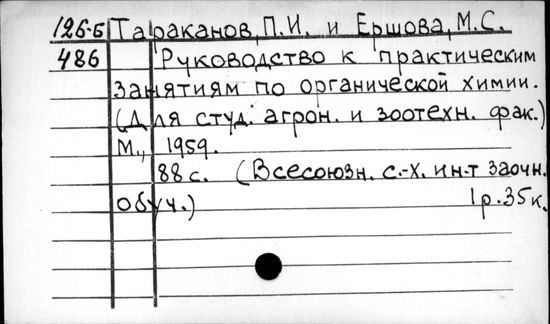 126-Б Тараканов, П.И. и Ершова, М.С.
486 Руководство к практическим
занятиям по органической химии.
(Для студ. агрон. и зоотехн. фак.)
М., 1959.
88 с. (Всесоюзн. с.-х. ин-т заочн.
обуч.) 1р.35к.